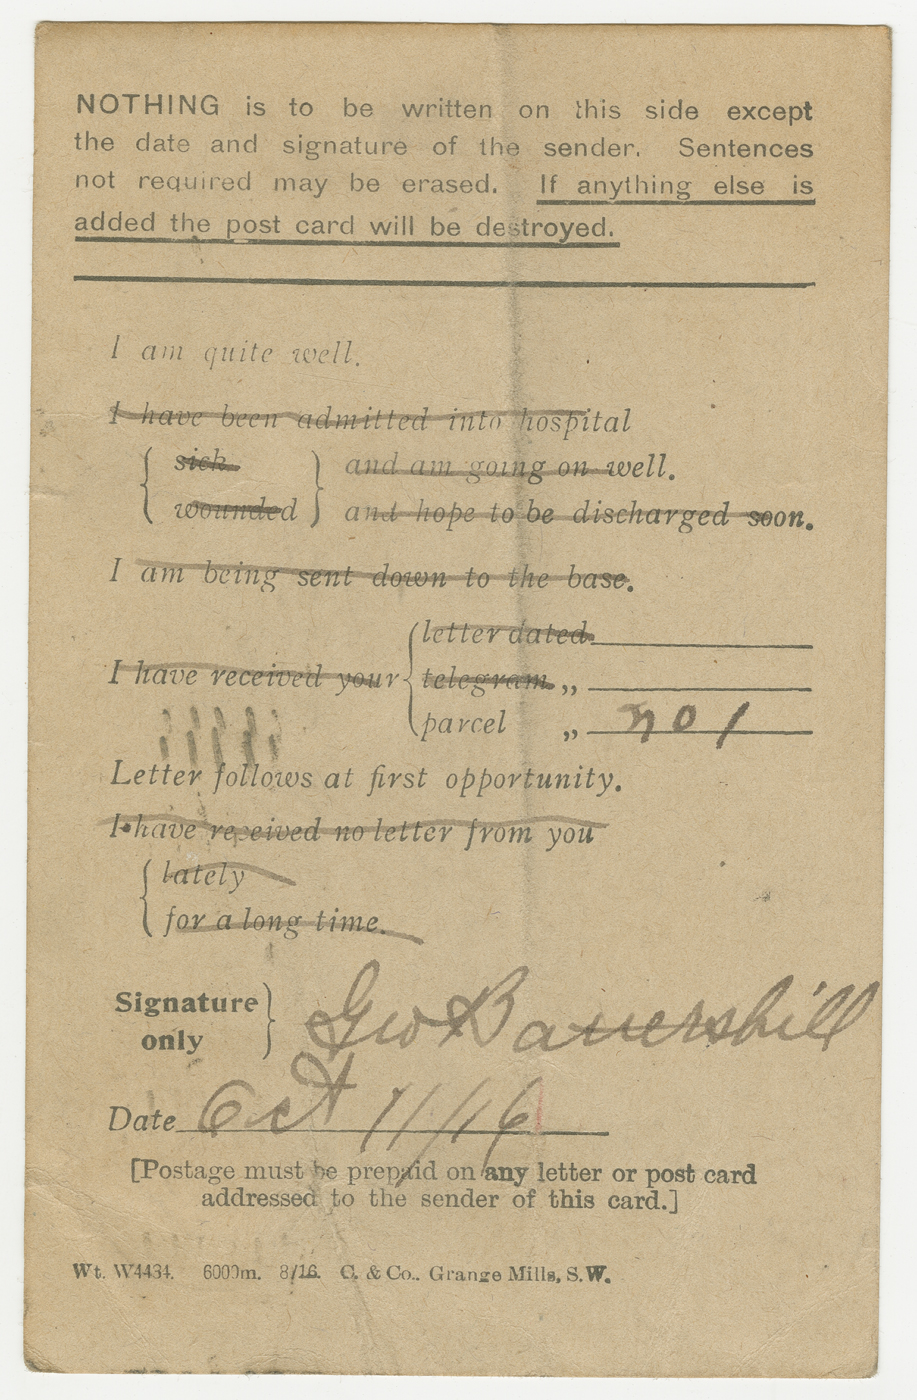 NOTHING is to be written on this side except
the date and signature of the sender. Sentences
not required may be erased. If anything else is
added the post card will be destroyed.
I am quite well.
I have been admitted into hospital
{ sick } and am going on well.
{ wounded } and hope to be discharged soon.
I am being sent down to the base.
letter dated
I have received your { telegram „
parcel „ no 1
Letter follows at first opportunity.
I have received no letter from you
{ lately
for a long time.
Signature
only } Geo B
Date Oct 11/16
[Postage must be prepaid on any letter or post card
addressed to the sender of this card.]
Wt. W4434. 6000m. 8/16. C. & Co.. Grange Mills, S.W.